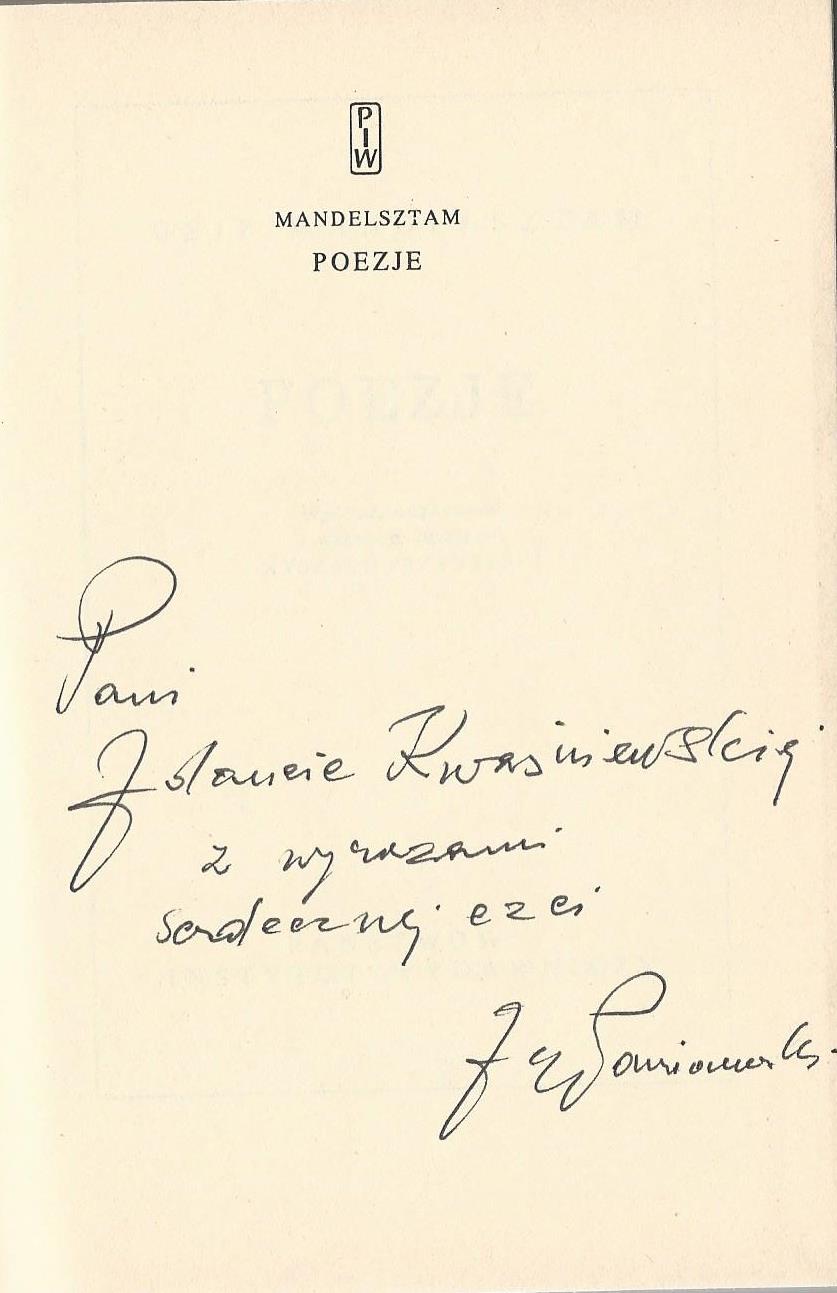 PIW
MANDELSZTAM
POEZJE
Pani
Jolancie Kwaśniewskiej
z wyrazami
serdecznej czci
Jerzy Pomianowski